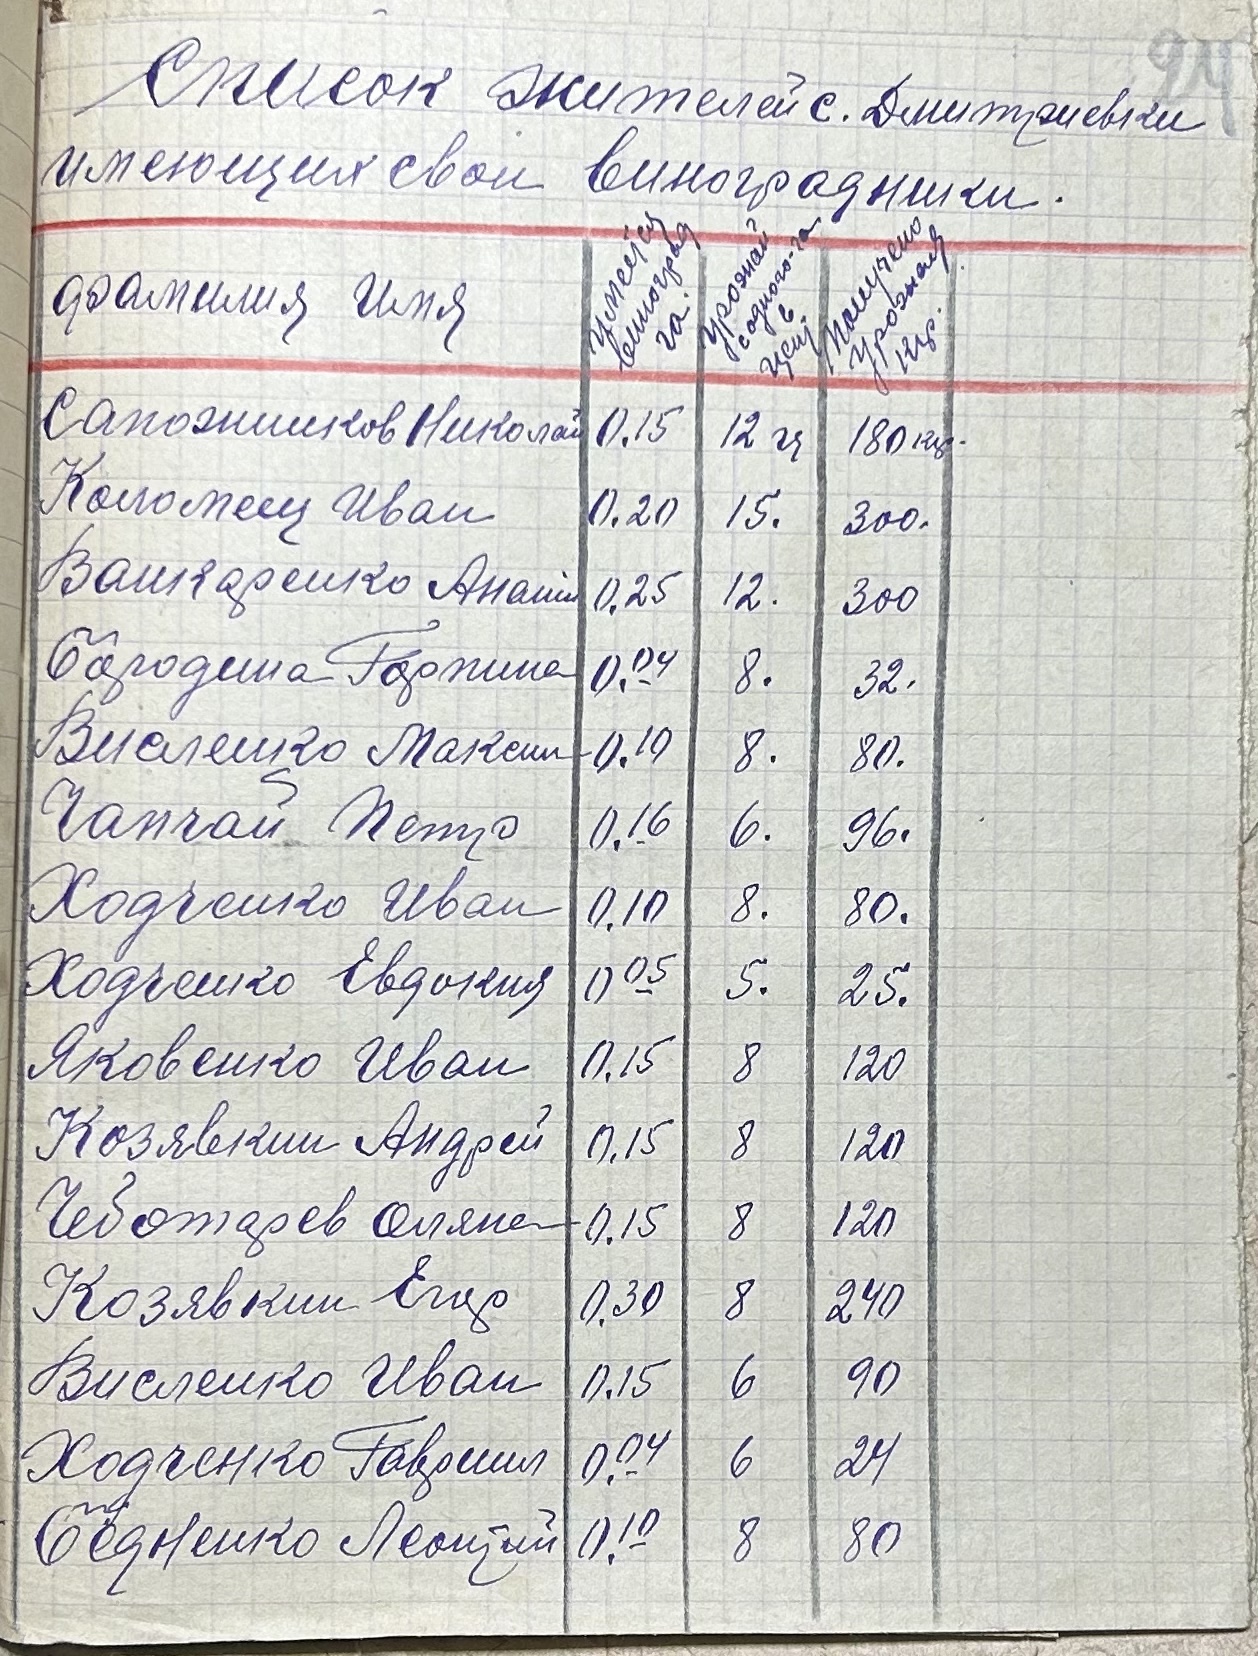 24
Список жителей с. Дмитриевки
имеющих свои виноградники.
Фамилия Имя | имеется виноград га. | урожай с одного га в цен. | Получено урожая кгр.
Сапожников Николай 0.15 12 ц 180 кгр.
Коломеец Иван 0.20 15. 300.
Вашкаренко Анатол 0.25 12. 300
Бородина Горпина 0.04 8. 32.
Висленко Максим 0.10 8. 80.
Чапчай Петро 0.16 6. 96.
Ходченко Иван 0.10 8. 80.
Ходченко Евдокия 0 05 5. 25.
Яковенко Иван 0.15 8 120
Козявкин Андрей 0.15 8 120
Чеботарев Оляна 0.15 8 120
Козявкин Егор 0.30 8 240
Висленко Иван 0.15 6 90
Ходченко Гавриил 0.04 6 24
Бедненко Леонтий 0.10 8 80